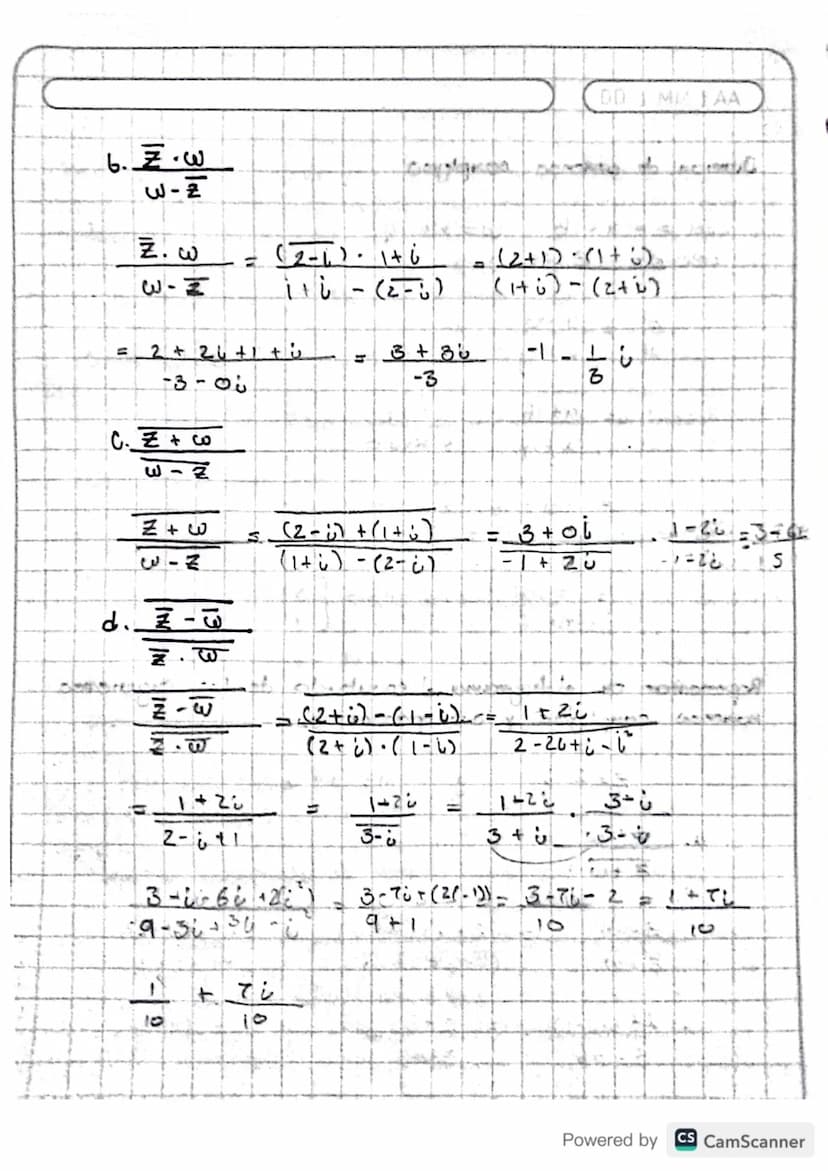 DD | MM | AA
b. z̅ · ω / ω - z̅
z̅ · ω / ω - z̅ = (2̅-̅i̅) · 1+i / 1+i - (2̅-̅i̅) = (2+1) · (1+i) / (1+i) - (2+i)
= 2 + 2i + 1 + i / -3 - 0i = 3 + 3i / -3   -1 - 1/3 i
c. z̅ ̅+̅ ̅ω̅ / ω̅ ̅-̅ ̅z̅
z̅ ̅+̅ ̅ω̅ / ω̅ ̅-̅ ̅z̅ = (2-i) + (1+i) / (1+i) - (2-i) = 3 + 0i / -1 + 2i · 1-2i / -1-2i = 3-6i / 5
d. z̅ - ω̅ / z̅ · ω̅
z̅ - ω̅ / z̅ · ω̅ = (2+i) - (1-i) / (2+i) · (1-i) = 1+2i / 2-2i+i-i²
= 1+2i / 2-i+1 = 1-2i / 3-i = 1-2i / 3+i · 3-i / 3-i
3-i-6i+2(i²) / 9-3i+3i-i² = 3-7i+(2(-1)) / 9+1 = 3-7i-2 / 10 = 1+7i / 10
1/10 + 7i/10
Powered by CS CamScanner